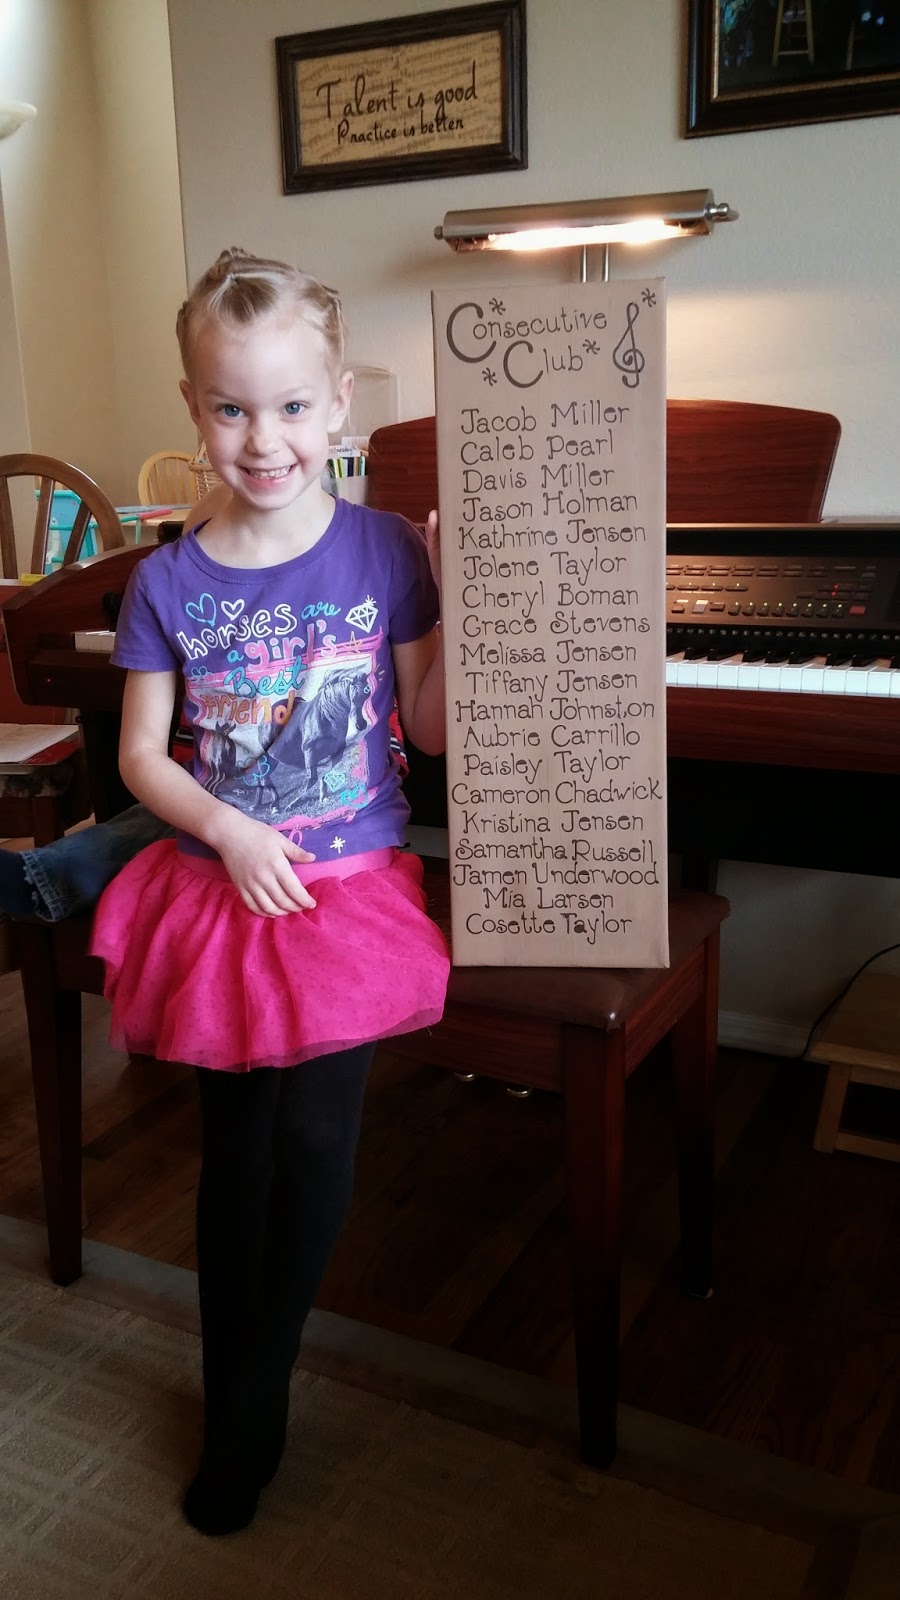 Talent is good
Practice is better
Consecutive
Club
Jacob Miller
Caleb Pearl
Davis Miller
Jason Holman
Kathrine Jensen
Jolene Taylor
Cheryl Boman
Grace Stevens
Melissa Jensen
Tiffany Jensen
Hannah Johnston
Aubrie Carrillo
Paisley Taylor
Cameron Chadwick
Kristina Jensen
Samantha Russell
Jamen Underwood
Mia Larsen
Cosette Taylor
horses are
a girl's
Best
friend